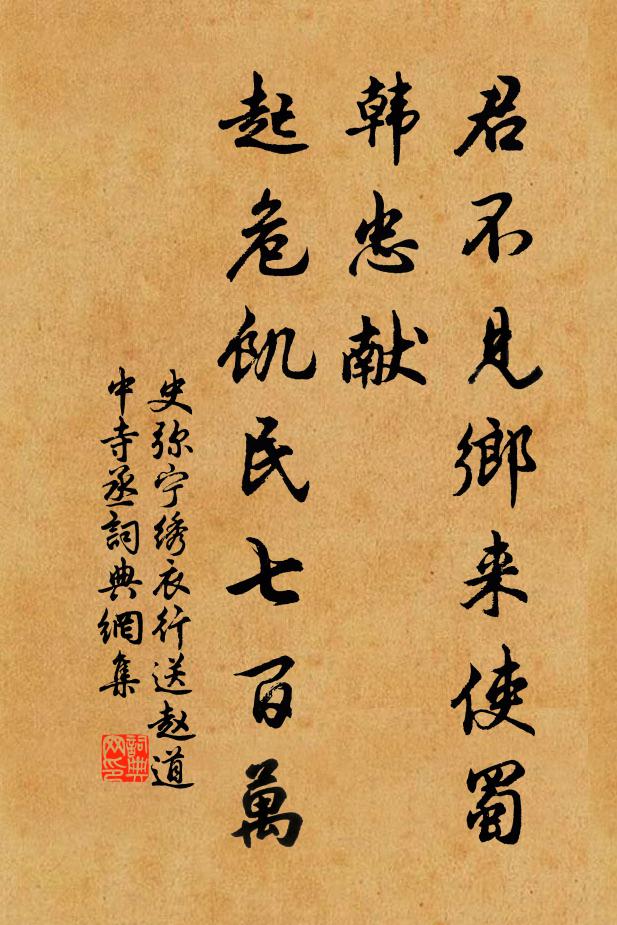 君不见鄉来使蜀
韩忠献
起危飢民七百萬
史弥宁绣衣行送赵道
中寺丞詞典網集
詞典网印